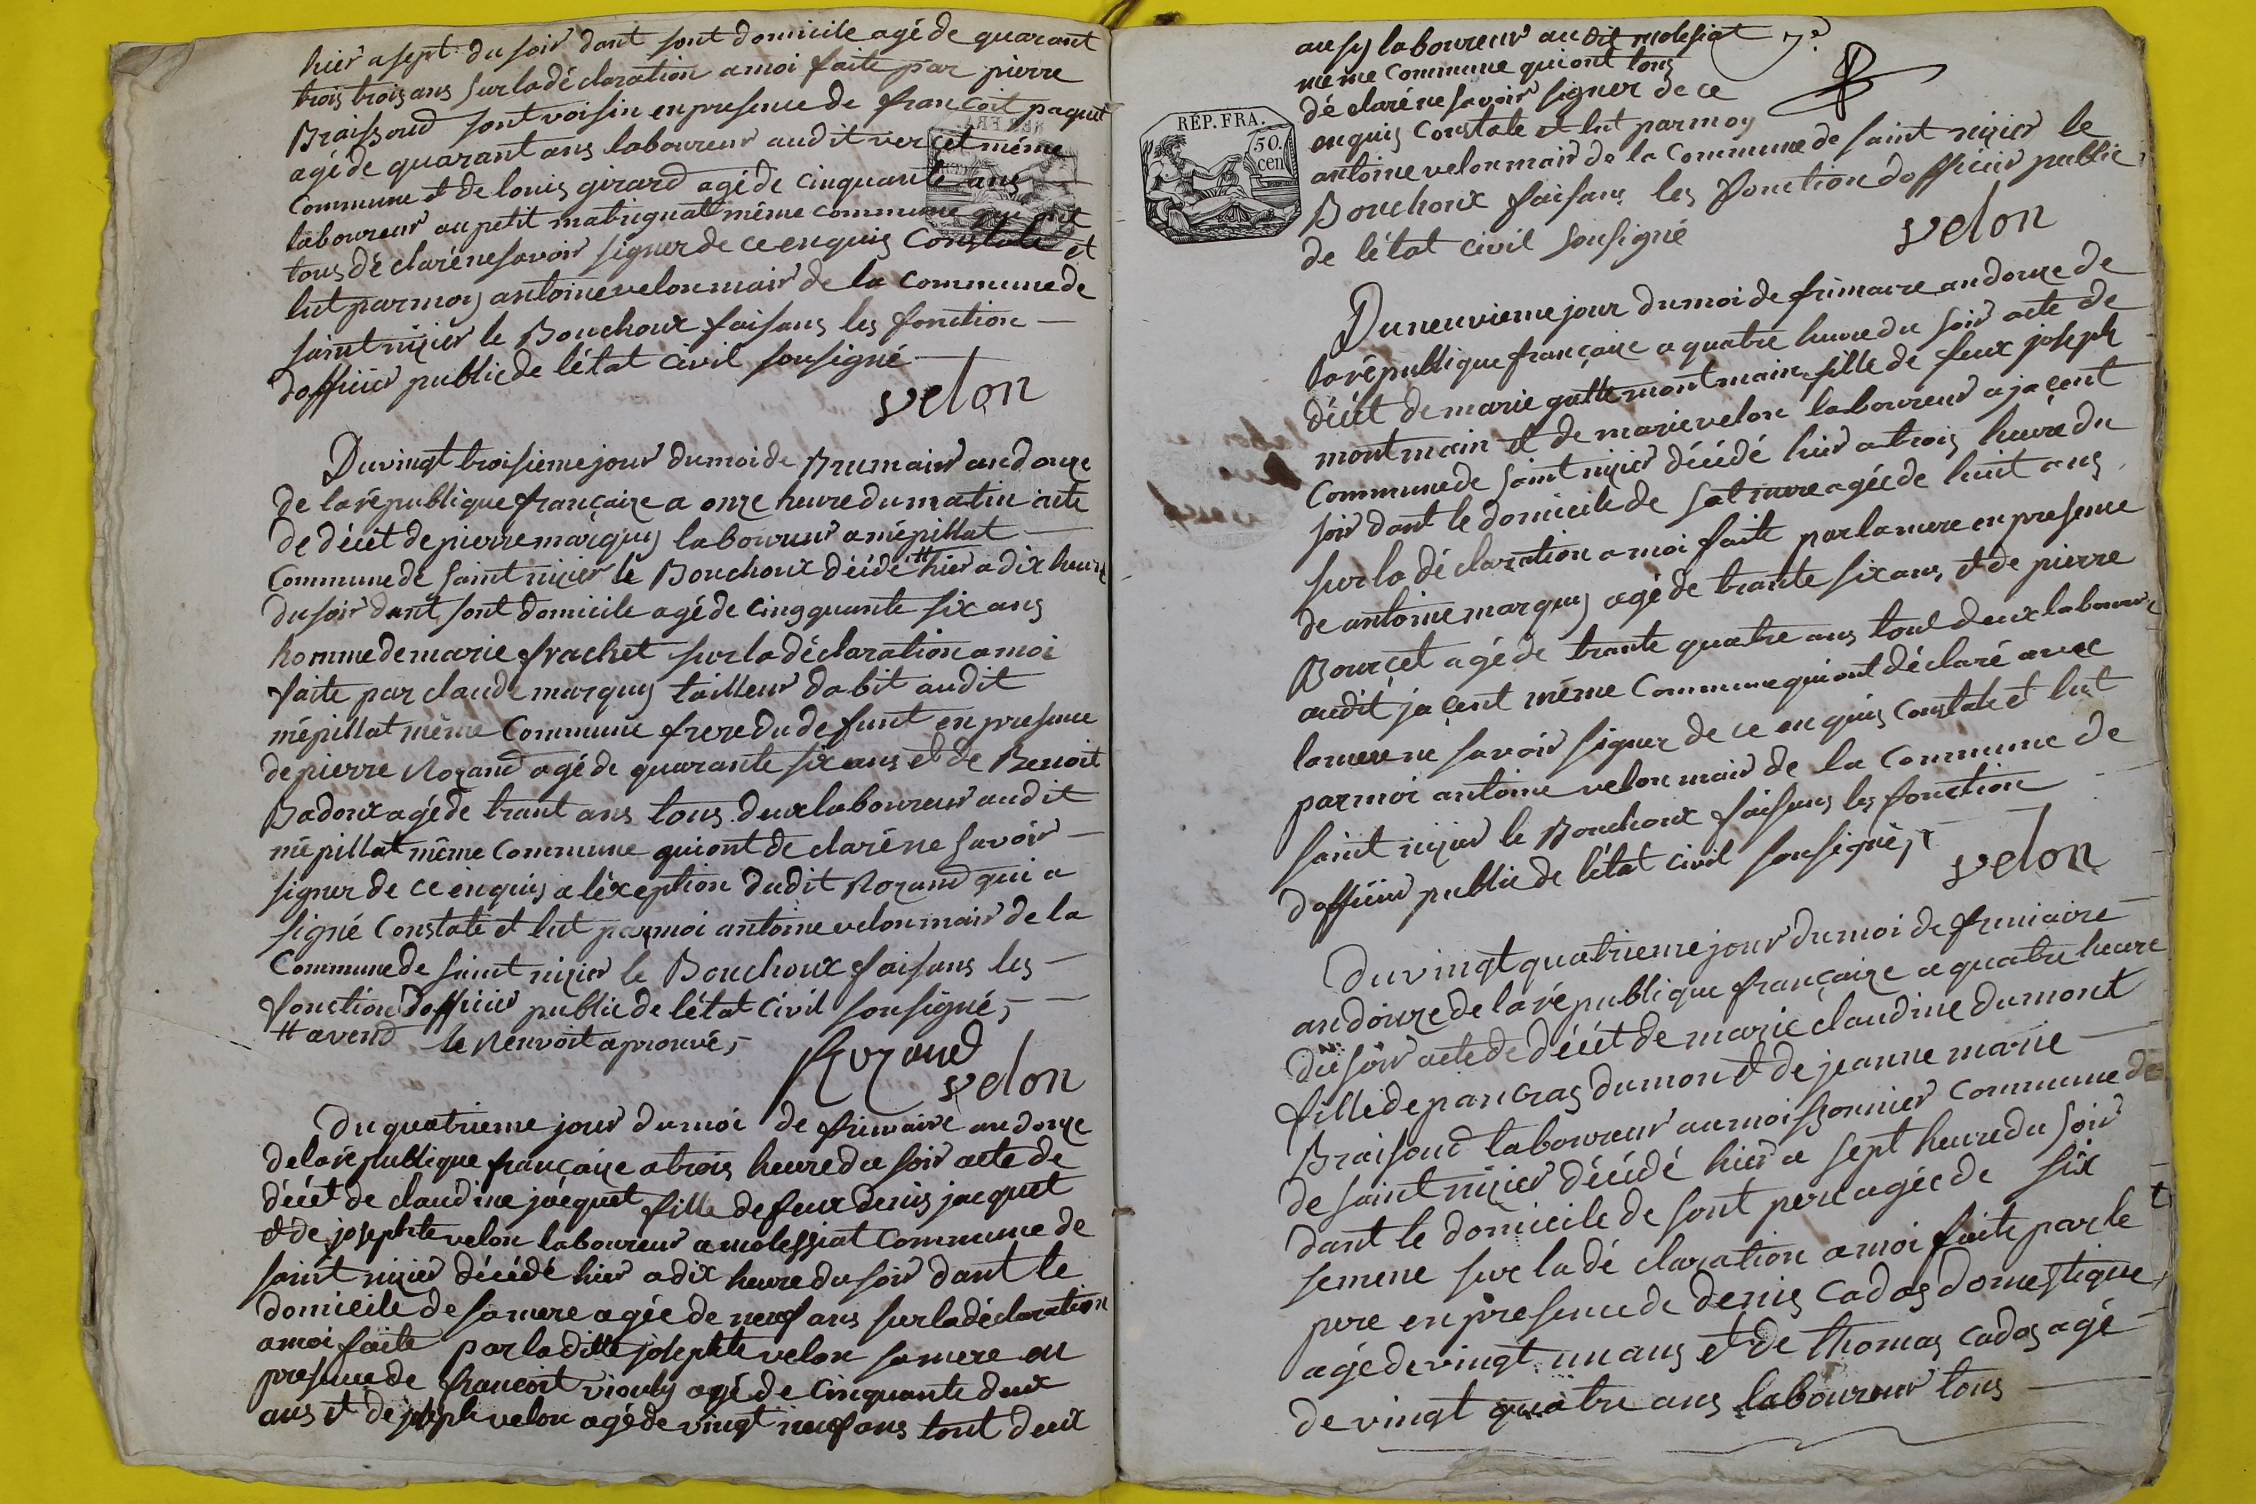 hier a sept du soir dant sont domicile agé de quarant
trois trois ans sur la dé claration a moi faite par pierre
Braissoud sont voisin en presence de francoit paquet
agé de quarant ans laboureur au dit vercet même
Commune et de louis girard agé de cinquante ans
laboureur au petit matignat même commune qui ont
tous dé claré ne savoir signer de ce enquis Constate et
lut par moy antoine velon mair de la Commune de
saint nizier le Bouchoux faisans les fonction
dofficier public de létat civil sousigné
velon
Du vingt troisieme jour du moi de Brumair an douze
de la république françaize a onze heure du matin acte
de décet de pierre marquis laboureur a mépillat
Commune de saint nizier le Bouchoux décédé # hier a dix heure
du soir dant sont domicile agé de cingquante six ans
homme de marie frachet sur la déclaration a moi
faite par claude marquis tailleur dabit audit
mépillat même Commune frere du defunt en presence
de pierre Rozand agé de quarante six ans et de Benoit
Badoux agé de trant ans tous deux laboureur audit
mépillat même Commune qui ont de claré ne savoir
signer de ce enquis a léxception dudit Rozand qui a
signé Constate et lut par moi antoine velon mair de la
Commune de saint nizier le Bouchoux faisans les
fonction dofficier public de létat civil sousigné,
# avend le Renvoit aprouvé,
Rozand
velon
Du quatrieme jour du moi de frimaire an douze
de la republique françaize a trois heure du soir acte de
décet de claudine jacquet fille de feux denis jacquet
et de josephte velon laboureur a molessiat Commune de
saint nizier décédé hier a dix heure du soir dant le
domicile de sa mere agée de neuf ans sur la déclaration
a moi faite par la ditte josephte velon sa mere en
presence de francoit viouly agé de Cinquante deux
ans et de joseph velon agé de vingt neuf ans tout deux
ausy laboureur au dit molesiat 7e
même Commune qui ont tous
dé claré ne savoir signer de ce
enquis Constate et lut par moy
REP. FRA.
50.
cen
antoine velon mair de la Commune de saint nizier le
Bouchoux faisans les fonction dofficier public
de létat civil sousigné
velon
Du neuvieme jour du moi de frimaire an douze de
la république françaize a quatre heure du soir acte de
décet de marie gatte montmain fille de feux joseph
montmain et de marie velon laboureur a jacent
Commune de saint nizier décédé hier a trois heure du
soir dant le domicile de sat mere agée de huit ans
sur la déclaration a moi faite par la mere en presence
de antoine marquis agé de trante six ans et de pierre
Bourcet agé de trante quatre ans tout deux laboure
audit jacent même Commune qui ont déclaré avec
la mere ne savoir signer de ce enquis Constate et lut
par moi antoine velon mair de la Commune de
saint nizier le Bouchoux faisans les fonction
dofficier public de létat civil sousigné,
velon
Du vingt quatrieme jour du moi de frimaire
an douze de la république françaize a quatre heure
du soir acte de décet de marie claudine dumont
fille de pancras dumon et de jeanne marie
Braisoud laboureur au moissonnier Commune de
de saint nizier décédé hier a sept heure du soir
dant le domicile de sont pere agée de six
semene sur la dé claration a moi faite par le
pere en presence de denis Cadas domestique
agé de vingt un ans et de thomas cadas agé
de vingt quatre ans laboureur tous